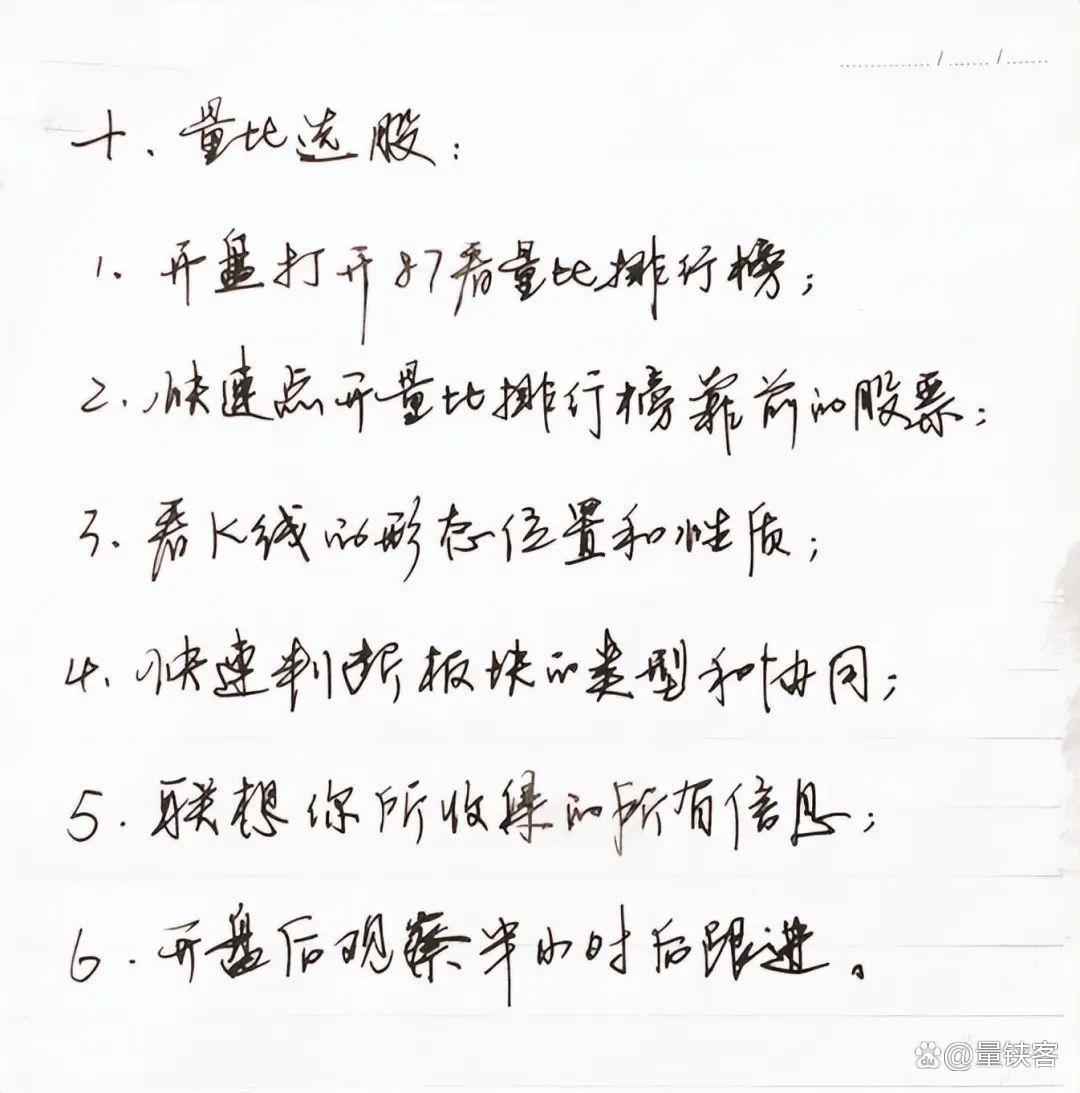 十、量比选股：
1. 开盘打开87看量比排行榜；
2. 快速点开量比排行榜靠前的股票；
3. 看K线的形态位置和性质；
4. 快速判断板块的类型和协同；
5. 联想你所收集的所有信息；
6. 开盘后观察半小时后跟进。
Baidu @量铗客